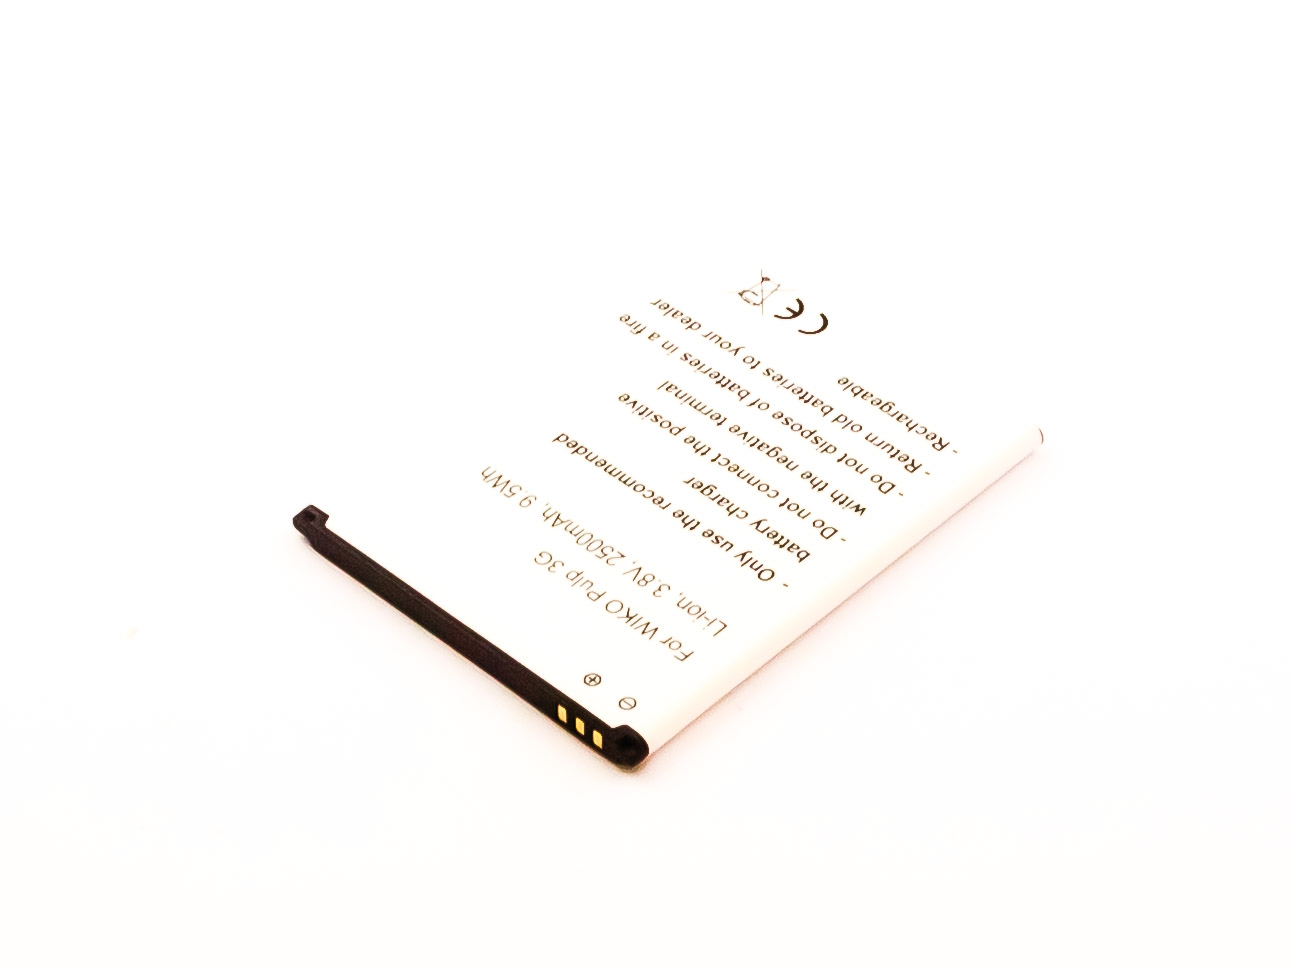 For WIKO Pulp 3G
Li-Ion, 3.8V, 2500mAh, 9.5Wh
- Only use the recommended
battery charger
- Do not connect the positive
with the negative terminal
- Do not dispose of batteries in a fire
- Return old batteries to your dealer
- Rechargeable
CE